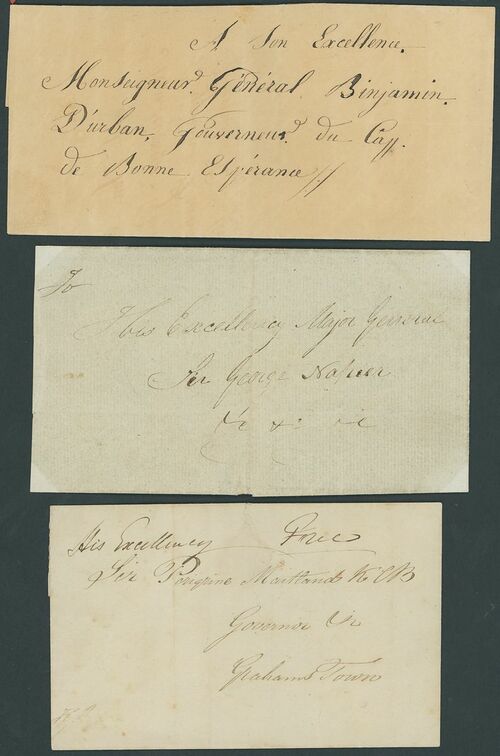 A Son Excellence.
Monseigneur. Général Binjamin.
D'urban, Gouverneur. du Cap.
de Bonne Espérance //
To
His Excellency Major General
Sir George Napier
&c &c &c
His Excellency Free
Sir Peregrine Maitland K C B
Governor &c
Grahams Town